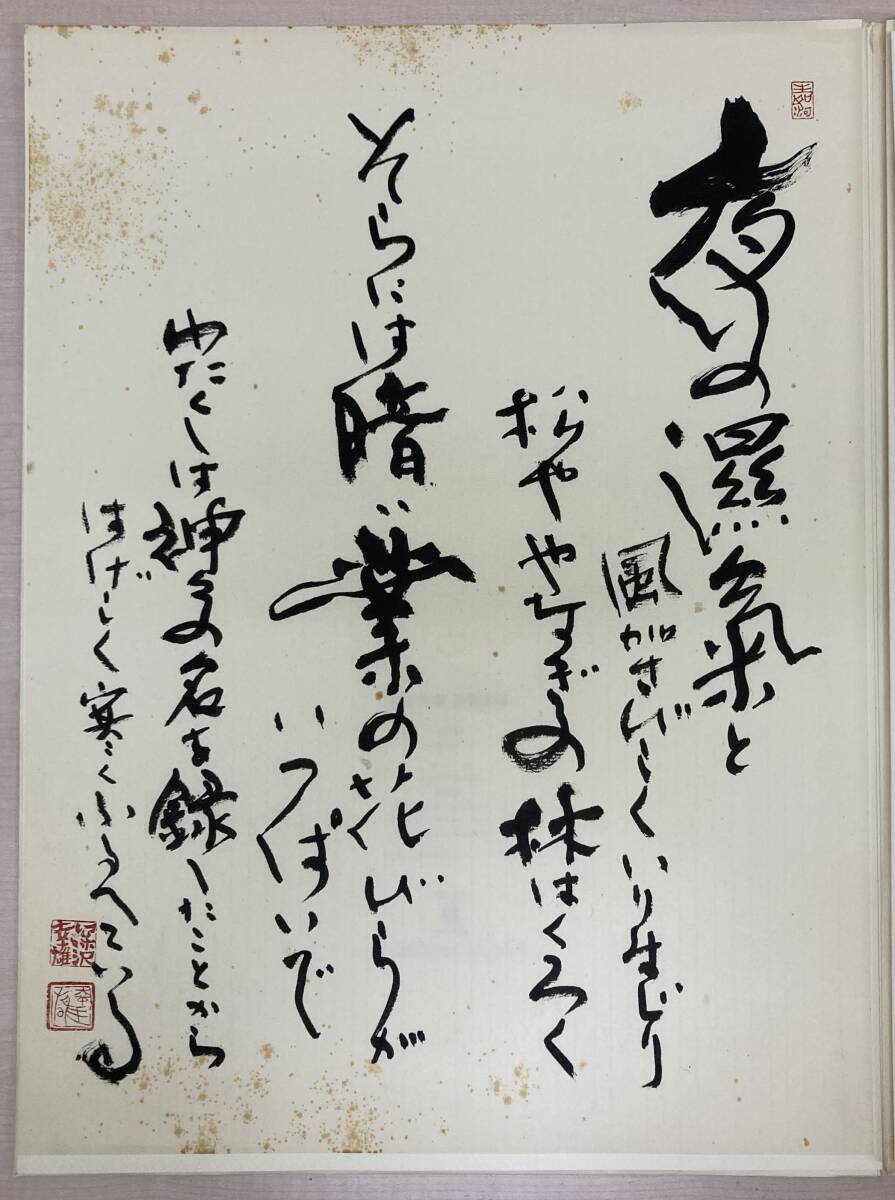 夜の濕氣と
風がさびしくいりまじり
松ややなぎの林はくろく
そらには暗い業の花びらが
いっぱいで
わたくしは神々の名を録したことから
はげしく寒くふるへている
深沢幸雄